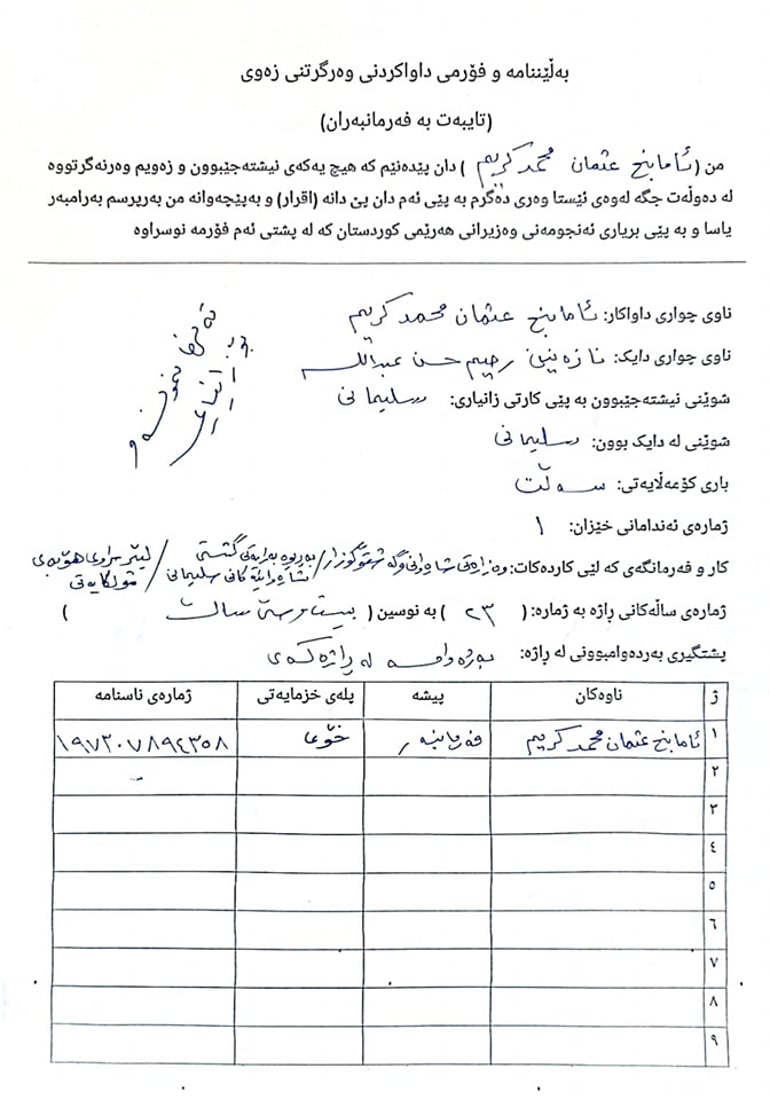 بەڵێننامە و فۆرمی داواکردنی وەرگرتنی زەوی
(تایبەت بە فەرمانبەران)
من (ئامانج عثمان محمد کریم) دان پێدەنێم کە هیچ یەکەی نیشتەجێبوون و زەویم وەرنەگرتووە
لە دەوڵەت جگە لەوەی ئێستا وەری دەگرم بە پێی ئەم دان پێ دانە (اقرار) و بەپێچەوانە من بەرپرسم بەرامبەر
یاسا و بە پێی بریاری ئەنجومەنی وەزیرانی هەرێمی کوردستان کە لە پشتی ئەم فۆرمە نوسراوە
ناوی چواری داواکار: ئامانج عثمان محمد کریم
ناوی چواری دایک: نازەنین رحیم حسن عبداللە
شوێنی نیشتەجێبوون بە پێی کارتی زانیاری: سلیمانی
شوێنی لە دایک بوون: سلیمانی
باری کۆمەڵایەتی: سەڵت
ژمارەی ئەندامانی خێزان: ١
کار و فەرمانگەی کە لێی کاردەکات: وەزارەتی شارەوانی و گەشتوگوزار/بەڕێوەبەرایەتی گشتی شارەوانیەکانی سلیمانی/
ژمارەی ساڵەکانی ڕاژە بە ژمارە: (٢٣) بە نوسین (بیست و سێ ساڵ)
پشتگیری بەردەوامبوونی لە ڕاژە: بەردەوامە لە ڕاژەکەی
ژ ناوەکان پیشە پلەی خزمایەتی ژمارەی ناسنامە
١ ئامانج عثمان محمد کریم فەرمانبەر خۆی ١٩٧٣٠٧٨٩٤٣٥٨
٢
٣
٤
٥
٦
٧
٨
٩